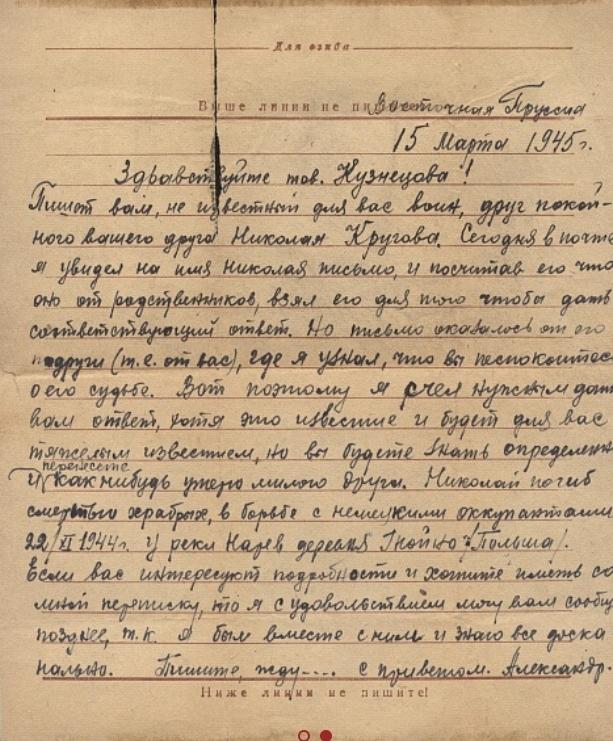 Для сгиба
Выше линии не пишите
Восточная Пруссия
15 Марта 1945 г.
Здравствуйте тов. Кузнецова!
Пишет вам, не известный для вас воин, друг покой-
ного вашего друга Николая Кругова. Сегодня в почте
я увидел на имя Николая письмо, и посчитав его что
оно от родственников, взял его для того чтобы дать
соответствующий ответ. Но письмо оказалось от его
подруги (т.е. от вас), где я узнал, что вы беспокоитесь
о его судьбе. Вот поэтому я счел нужным дать
вам ответ, хотя это известие и будет для вас
тяжелым известием, но вы будете знать определен
перенесете
и как нибудь утерю милого друга. Николай погиб
смертью храбрых, в борьбе с немецкими оккупантами
22/XI 1944 г. у реки Нарев деревня Гнойно /Польша/.
Если вас интересуют подробности и хотите иметь со
мной переписку, то я с удовольствием могу вам сообщ
позднее, т.к. я был вместе с ним и знаю все доска
нально. Пишите, жду.... с приветом. Александр.
Ниже линии не пишите!